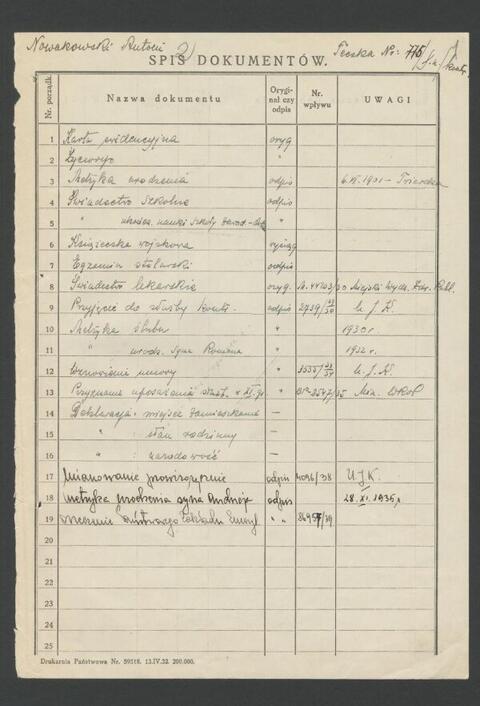 Nowakowski Antoni 2)
Teczka Nr: 775/
SPIS DOKUMENTÓW.
Nr. porządk. Nazwa dokumentu Orygi- nał czy odpis Nr. wpływu UWAGI
1 Karta ewidencyjna oryg
2 Życiorys "
3 Metryka urodzenia odpis 6.VI.1901 -
4 Świadectwo szkolne odpis
5 " ukończ. nauki Szkoły "
6 Książeczka wojskowa wyciąg
7 Egzamin stolarski odpis
8 Świadectwo lekarskie oryg. Miejski Wydz.
9 Przyjęcie do służby kontr. odpis 2739/ U. J. K.
10 Metryka ślubu " 1930 r.
11 " urodz. syna Romana " 1932 r.
12 Wznowienie umowy " U. J. K.
13 Przyznanie uposażenia "
14 Deklaracja: miejsce zamieszkania —
15 " : stan rodzinny —
16 " : narodowość —
17 Mianowanie prowizorycznie odpis 4096/38 U.J.K.
18 Metryka urodzenia syna Andrzeja odpis 28.XI.1935,
19 " " /39
20
21
22
23
24
25
Drukarnia Państwowa Nr. 59518. 13.IV.32. 200.000.